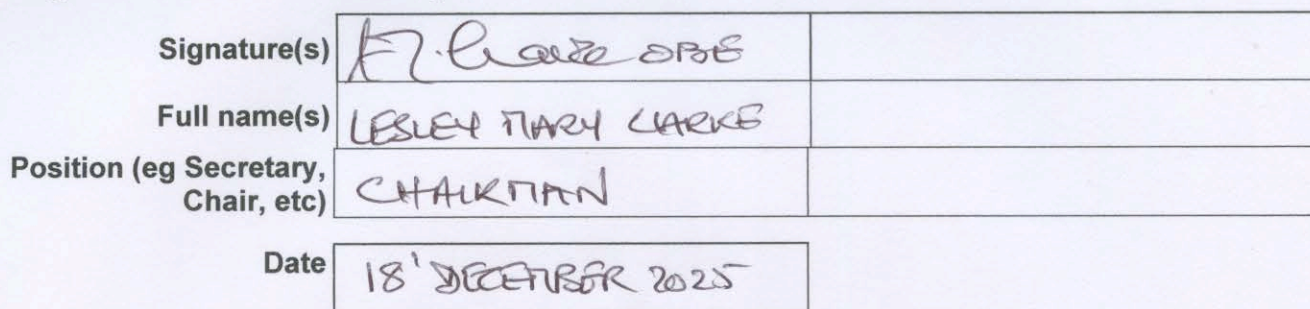 Signature(s) OBE
Full name(s) LESLEY MARY CLARKE
Position (eg Secretary,
Chair, etc) CHAIRMAN
Date 18' DECEMBER 2025